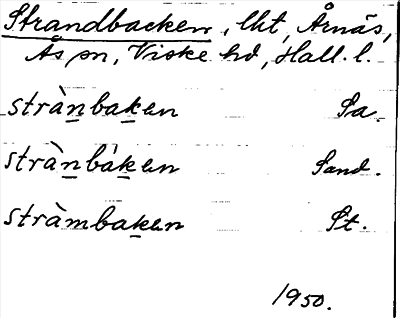 Strandbacken, lht, Årnäs,
Ås sn, Viske hd, Hall. l.
strànbaken Sa.
strànbàken Sand.
stràmbaken St.
1950.